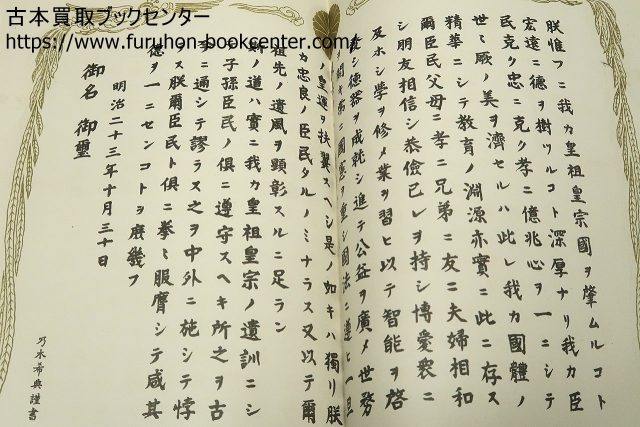 古本買取ブックセンター
https://www.furuhon-bookcenter.com/
朕惟フニ我カ皇祖皇宗國ヲ肇ムルコト
宏遠ニ德ヲ樹ツルコト深厚ナリ我カ臣
民克ク忠ニ克ク孝ニ億兆心ヲ一ニシテ
世々厥ノ美ヲ濟セルハ此レ我カ國體ノ
精華ニシテ教育ノ淵源亦實ニ此ニ存ス
爾臣民父母ニ孝ニ兄弟ニ友ニ夫婦相和
シ朋友相信シ恭儉己レヲ持シ博愛衆ニ
及ホシ學ヲ修メ業ヲ習ヒ以テ智能ヲ啓
シ德器ヲ成就シ進テ公益ヲ廣メ世務
ヲ開キ常ニ國憲ヲ重シ國法ニ遵ヒ一旦
皇運ヲ扶翼スヘシ是ノ如キハ獨リ朕
カ忠良ノ臣民タルノミナラス又以テ爾
祖先ノ遺風ヲ顯彰スルニ足ラン
斯ノ道ハ實ニ我カ皇祖皇宗ノ遺訓ニシ
子孫臣民ノ俱ニ遵守スヘキ所之ヲ古
今ニ通シテ謬ラス之ヲ中外ニ施シテ悖
ス朕爾臣民ト俱ニ拳々服膺シテ咸其
德ヲ一ニセンコトヲ庶幾フ
明治二十三年十月三十日
御名 御璽
乃木希典謹書